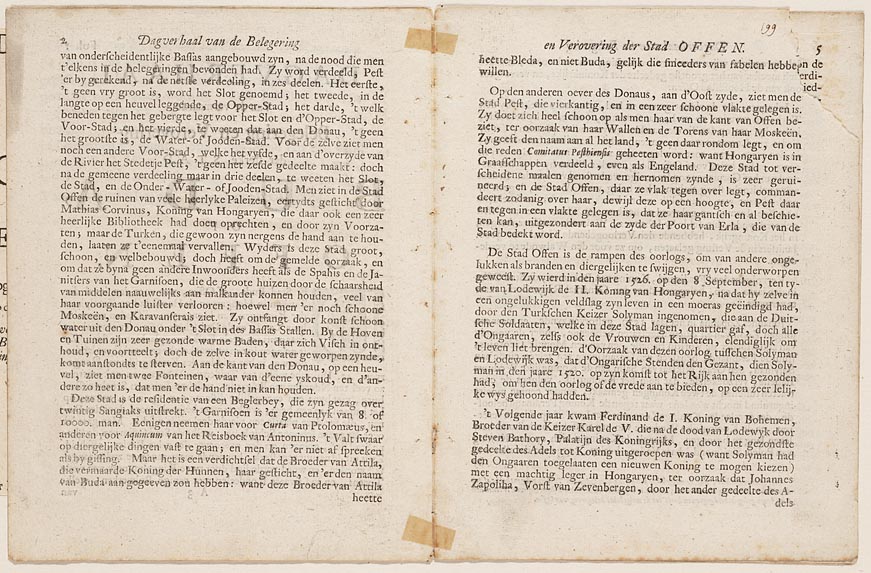 2 Dagverhaal van de Belegering
van onderscheidentlijke Bassas aangebouwd zyn, na de nood die men
t'elkens in de belegeringen bevonden had. Zy word verdeeld, Pest
'er by gerekend, na de netste verdeeling, in zes deelen. Het eerste,
't geen vry groot is, word het Slot genoemd; het tweede, in de
langte op een heuvel leggende, de Opper-Stad; het darde, 't welk
beneden tegen het gebergte legt voor het Slot en d'Opper-Stad, de
Voor-Stad; en het vierde, te weeten dat aan den Donau, 't geen
het grootste is, de Water- of Jooden-Stad. Voor de zelve ziet men
noch een andere Voor-Stad, welke het vysde, en aan d'overzyde van
de Rivier het Stedetje Pest, 't geen het zesde gedeelte maakt: doch
na de gemeene verdeeling maar in drie deelen, te weeten het Slot,
de Stad, en de Onder- Water- of Jooden-Stad. Men ziet in de Stad
Offen de ruinen van veele heerlyke Paleizen, eertydts gesticht door
Mathias Corvinus, Koning van Hongaryen, die daar ook een zeer
heerlijke Bibliotheek had doen oprechten, en door zyn Voorza-
ten; maar de Turken, die gewoon zyn nergens de hand aan te hou-
den, laaten ze t'eenemaal vervallen. Wyders is deze Stad groot,
schoon, en welbebouwd; doch heeft om de gemelde oorzaak, en
om dat ze byna geen andere Inwoonders heeft als de Spahis en de Ja-
nitsers van het Garnisoen, die de groote huizen door de schaarsheid
van middelen naauwelijks aan malkander konnen houden, veel van
haar voorgaande luister verlooren: hoewel men 'er noch schoone
Moskeën, en Karavanserais ziet. Zy ontfangt door konst schoon
water uit den Donau onder 't Slot in des Bassas Stallen. By de Hoven
en Tuinen zijn zeer gezonde warme Baden, daar zich Visch in ont-
houd, en voortteelt; doch de zelve in kout water geworpen zynde,
komt aanstondts te sterven. Aan de kant van den Donau, op een heu-
vel, ziet men twee Fonteinen, waar van d'eene yskoud, en d'an-
dere zo heet is, dat men 'er de hand niet in kan houden.
Deze Stad is de residentie van een Beglerbey, die zyn gezag over
twintig Sangiaks uitstrekt. 't Garnisoen is 'er gemeenlyk van 8. of
10000. man. Eenigen neemen haar voor Curta van Ptolomæus, en
anderen voor Aquincum van het Reisboek van Antoninus. 't Valt swaar
op diergelijke dingen vast te gaan; en men kan 'er niet af spreeken
als by gissing. Maar het is een verdichtsel dat de Broeder van Attila,
die vermaarde Koning der Hunnen, haar gesticht, en 'er den naam
van Buda aan gegeeven zou hebben: want deze Broeder van Attila
heette
99
en Verovering der Stad OFFEN. 5
heette Bleda, en niet Buda, gelijk die smeeders van fabelen hebben
willen.
Op den anderen oever des Donaus, aan d'Oost zyde, ziet men de
Stad Pest, die vierkantig, en in een zeer schoone vlakte gelegen is.
Zy doet zich heel schoon op als men haar van de kant van Offen be-
ziet, ter oorzaak van haar Wallen en de Torens van haar Moskeën.
Zy geeft den naam aan al het land, 't geen daar rondom legt, en om
die reden Comitatus Pesthiensis geheeten word: want Hongaryen is in
Graafschappen verdeeld, even als Engeland. Deze Stad tot ver-
scheidene maalen genomen en hernomen zynde, is zeer gerui-
neerd; en de Stad Offen, daar ze vlak tegen over legt, comman-
deert zodanig over haar, dewijl deze op een hoogte, en Pest daar
en tegen in een vlakte gelegen is, dat ze haar gantsch en al beschie-
ten kan, uitgezondert aan de zyde der Poort van Erla, die van de
Stad bedekt word.
De Stad Offen is de rampen des oorlogs, om van andere onge-
lukken als branden en diergelijken te swijgen, vry veel onderworpen
geweest. Zy wierd in den jaare 1526. op den 8 September, ten ty-
de van Lodewijk de II. Koning van Hongaryen, na dat hy zelve in
een ongelukkigen veldslag zyn leven in een moeras geëindigd had,
door den Turkschen Keizer Solyman ingenomen, die aan de Duit-
sche Soldaaten, welke in deze Stad lagen, quartier gaf, doch alle
d'Ongaaren, zelfs ook de Vrouwen en Kinderen, elendiglijk om
't leven liet brengen. d'Oorzaak van dezen oorlog tusschen Solyman
en Lodewijk was, dat d'Ongarische Stenden den Gezant, dien Soly-
man in den jaare 1520. op zyn komst tot het Rijk aan hen gezonden
had, om hen den oorlog of de vrede aan te bieden, op een zeer lelij-
ke wys gehoond hadden.
't Volgende jaar kwam Ferdinand de I. Koning van Bohemen,
Broeder van de Keizer Karel de V. die na de dood van Lodewyk door
Steven Bathory, Palatijn des Koningrijks, en door het gezondste
gedeelte des Adels tot Koning uitgeroepen was (want Solyman had
den Ongaaren toegelaaten een nieuwen Koning te mogen kiezen)
met een machtig leger in Hongaryen, ter oorzaak dat Johannes
Zapoliha, Vorst van Zevenbergen, door het ander gedeelte des A-
dels